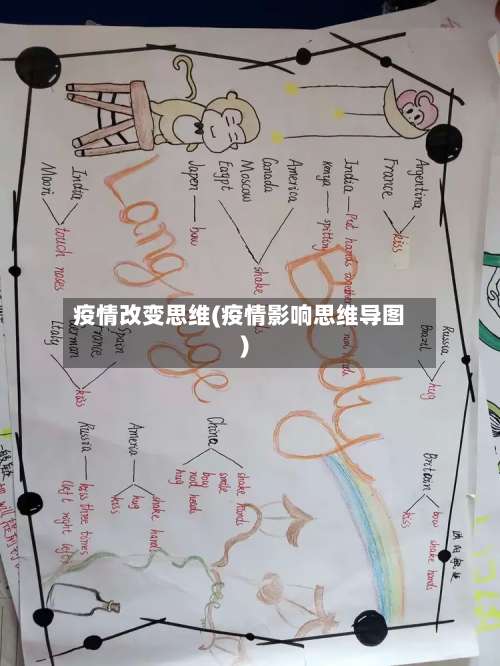 Body Language
Argentina
France
kiss
India — Put hands together
Kenya — spitting
America
Canada
Moscow
Egypt
shake
Japen — bow
India
Maori
touch noses
Russia
Brazil
hug
Britain
bow shake hands
kiss
Spain
France
German
Italy
kiss
China
shake hands
smile
bow
nod heads
hug
America
shake hands
hug
kiss
Russia — kiss three times
(left right left)
疫情改变思维(疫情影响思维导图
)